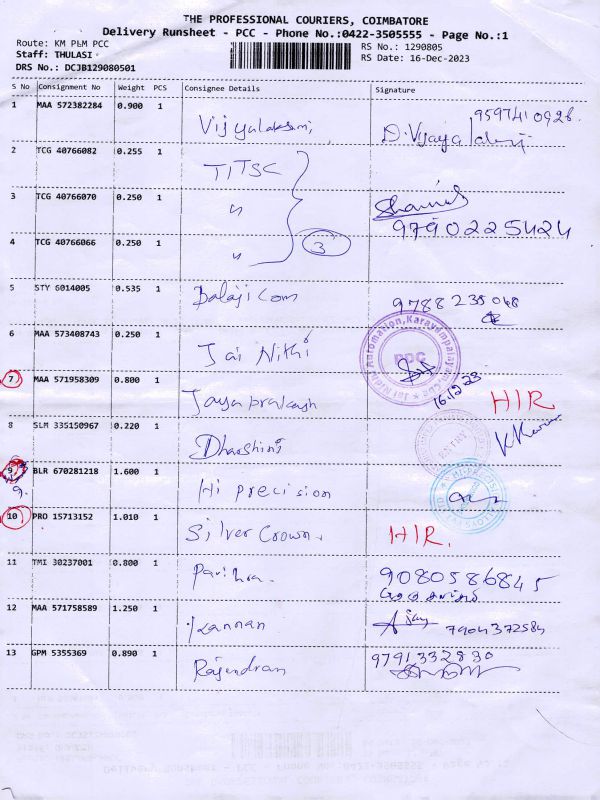 THE PROFESSIONAL COURIERS, COIMBATORE
Delivery Runsheet - PCC - Phone No.:0422-3505555 - Page No.:1
Route: KM PLM PCC
RS No.: 1290805
Staff: THULASI
RS Date: 16-Dec-2023
DRS No.: DCJB129080501
S No Consignment No Weight PCS Consignee Details Signature
1 MAA 572382284 0.900 1 Vijyalakshmi 9597410926
D. Vijaya
2 TCG 40766082 0.255 1 TITSC
3 TCG 40766070 0.250 1 "
3
9790225424
4 TCG 40766066 0.250 1 "
5 STY 6014005 0.535 1 Balaji Com 9788 235048
6 MAA 573408743 0.250 1 Jai Nithi
PDC
16.12.23
7 MAA 571958309 0.800 1 Jaya prakash HIR
8 SLM 335150967 0.220 1 Dharshini
9 BLR 670281218 1.600 1 Hi precision
9.
10 PRO 15713152 1.010 1 Silver Crown. HIR.
11 TMI 30237001 0.800 1 Pavithra. 9080586845
12 MAA 571758589 1.250 1 Kannan Ajay 7904372584
13 GPM 5355369 0.890 1 Rajendran 9791332830